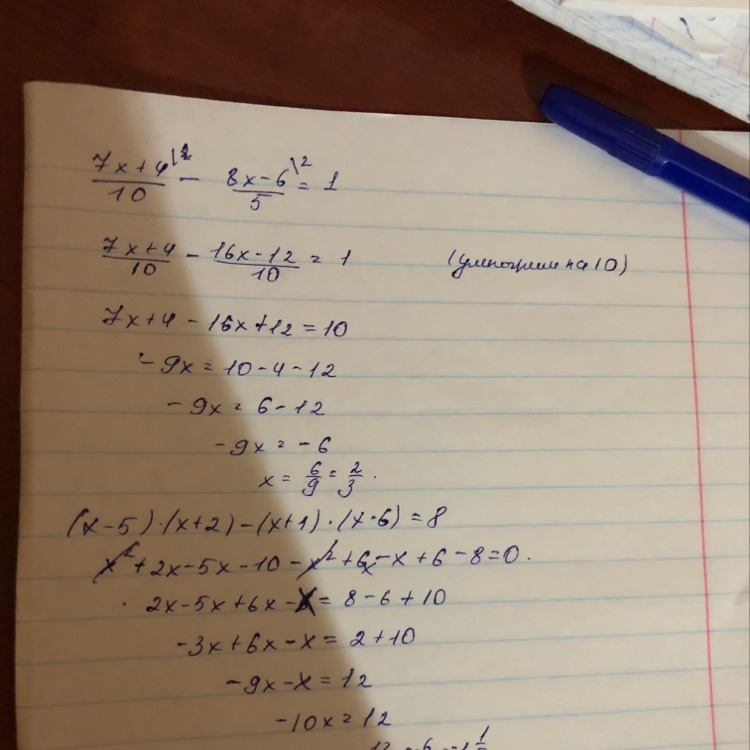 (7x+4)/10 - (8x-6)\2/5 = 1
(7x+4)/10 - (16x-12)/10 = 1 (умножим на 10)
7x+4-16x+12=10
-9x=10-4-12
-9x=6-12
-9x=-6
x=6/9=2/3.
(x-5)·(x+2)-(x+1)·(x-6)=8
x²+2x-5x-10-x²+6x-x+6-8=0.
2x-5x+6x-x=8-6+10
-3x+6x-x=2+10
-9x-x=12
-10x=12